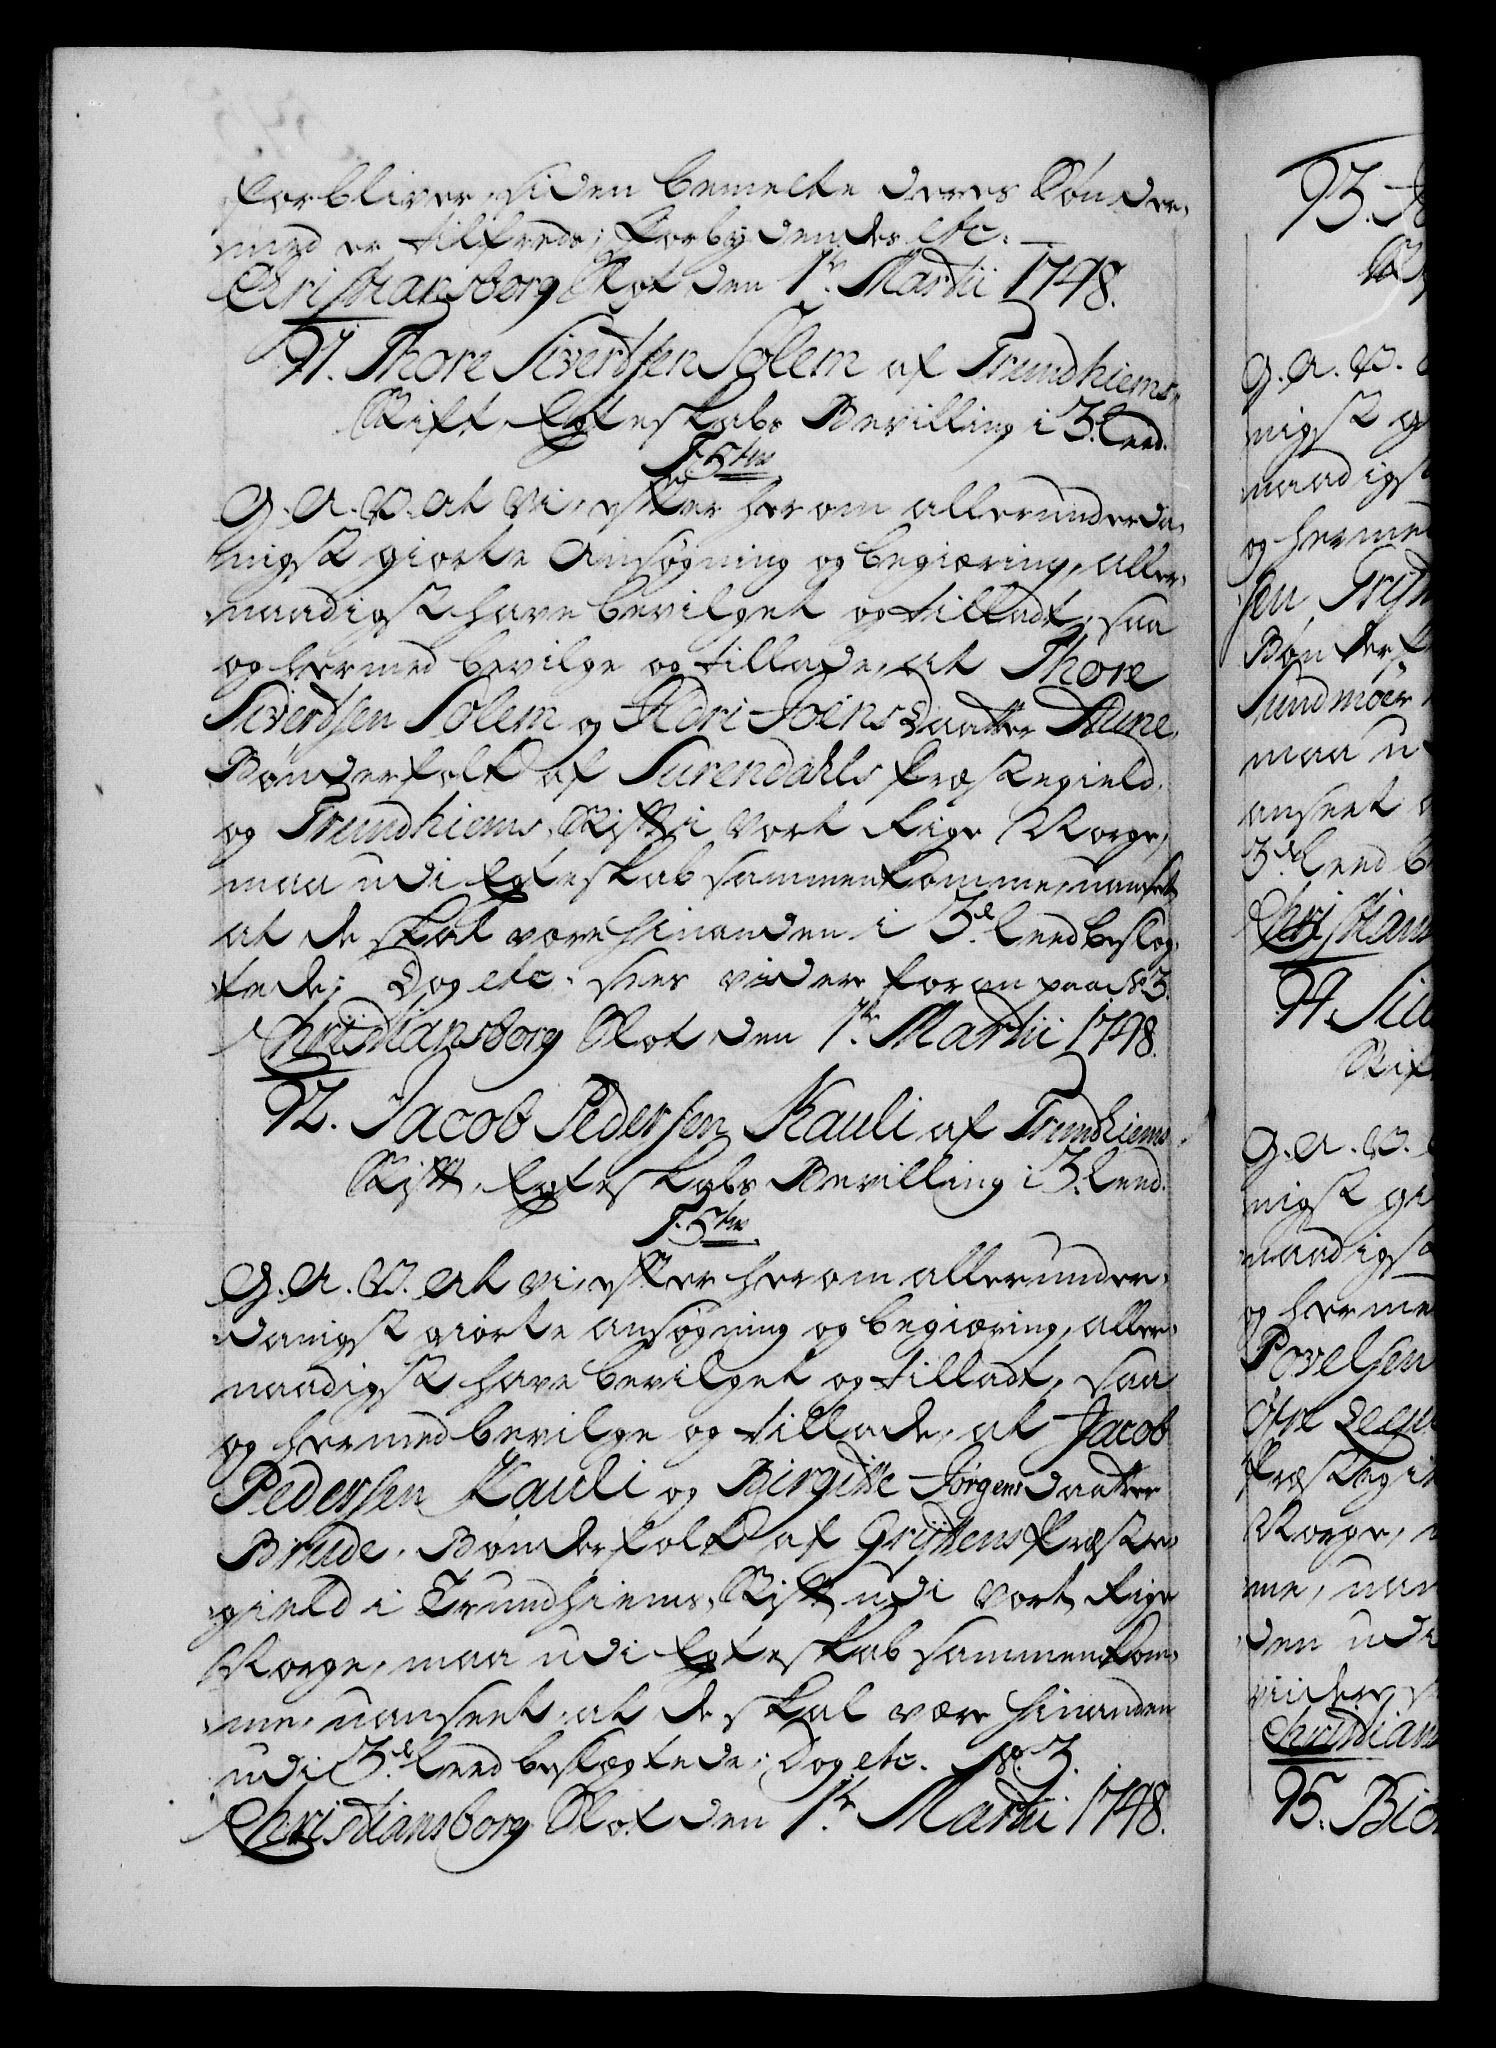 forbliver, siden bemelte deres Sønder-
med er tilfreds; Forbydendes etc. —
Christiansborg Slot den 1te Martii 1748.
91. Thore Siverdsen Solem af Trundhiems
Stift, Egteskabs Bevilling i 3. Leed.
F. 5tus
G. A. V. at Vi, efter herom allerunderda-
nigst giorte Ansøgning og begiæring, aller-
naadigst have bevilget og tilladt, saa
og hermed bevilge og tillade, at Thore
Siverdsen Solem og Adri Joens Daatter Aune,
Bønderfolk af Surendahls Præstegield
og Trundhiems Stift i Vort Rige Norge,
maa udi Egteskab sammenkomme, uanseet
at de skal være hinanden i 3de Leed beslæg-
tede; Dog etc. sees videre foran paa No 3.
Christiansborg Slot den 1te Martii 1748.
92. Jacob Pedersen Kauli af Trundhiems
Stift, Egteskabs Bevilling i 3. Leed.
F. 5tus
G. A. V. at Vi, efter herom allerunder-
danigst giorte ansøgning og begiæring, aller-
naadigst have bevilget og tilladt, saa
og hermed bevilge og tillade, at Jacob
Pedersen Kauli og Birgitte Jørgens Daatter
Brude, Bønderfolk af Grijttens Præste-
gield i Trundhiems Stift udi Vort Rige
Norge, maa udi Egteskab sammenkom-
me, uanseet, at de skal være hinanden
udi 3de Leed beslægtede; Dog etc. No. 3.
Christiansborg Slot den 1te Martii 1748.
93.
G. A. V.
nigst
naadigst
og hermed
sen
Bønderf
Sundmøer
maa u
anseet
3de Leed
Christians
94.
Stif
G. A. V.
nigst gi
naadigst
og herme
Povelsen
Præstegi
Norge,
me, uan
den udi
viidere
Christians
95. Biør